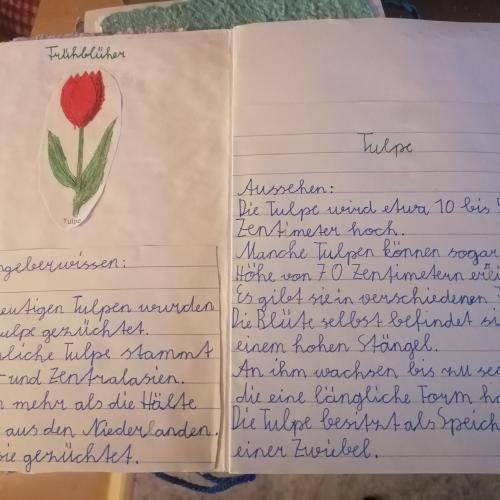 Frühblüher
Tulpe
ngeberwissen:
eutigen Tulpen wurden
ulpe gezüchtet.
liche Tulpe stammt
- und Zentralasien.
mehr als die Hälte
aus den Niederlanden.
sie gezüchtet.
Tulpe
Aussehen:
Die Tulpe wird etwa 10 bis
Zentimeter hoch.
Manche Tulpen können sogar
Höhe von 70 Zentimetern errei
Es gibt sie in verschiedenen
Die Blüte selbst befindet si
einem hohen Stängel.
An ihm wachsen bis zu sec
die eine längliche Form ha
Die Tulpe besitzt als Speich
einer Zwiebel.